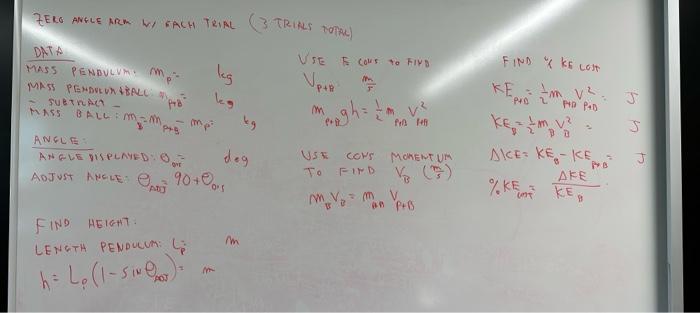 ZERO ANGLE ARM W/ EACH TRIAL (3 TRIALS TOTAL)
DATA
MASS PENDULUM: m_P = kg
MASS PENDULUM+BALL: m_P+B = kg
- SUBTRACT -
MASS BALL: m_B = m_P+B - m_P = kg
ANGLE:
ANGLE DISPLAYED: θ_DIS = deg
ADJUST ANGLE: θ_ADJ = 90+θ_DIS
FIND HEIGHT:
LENGTH PENDULUM: L_P = m
h = L_P (1-SIN θ_ADJ) = m
USE E CONS TO FIND
V_P+B: m/s
m_P+B gh = 1/2 m_P+B V²_P+B
USE CONS MOMENTUM
TO FIND V_B (m/s)
m_B V_B = m_P+B V_P+B
FIND % KE LOST
KE_P+B = 1/2 m_P+B V²_P+B = J
KE_B = 1/2 m_B V²_B = J
ΔKE = KE_B - KE_P+B = J
%KE_LOST = ΔKE / KE_B